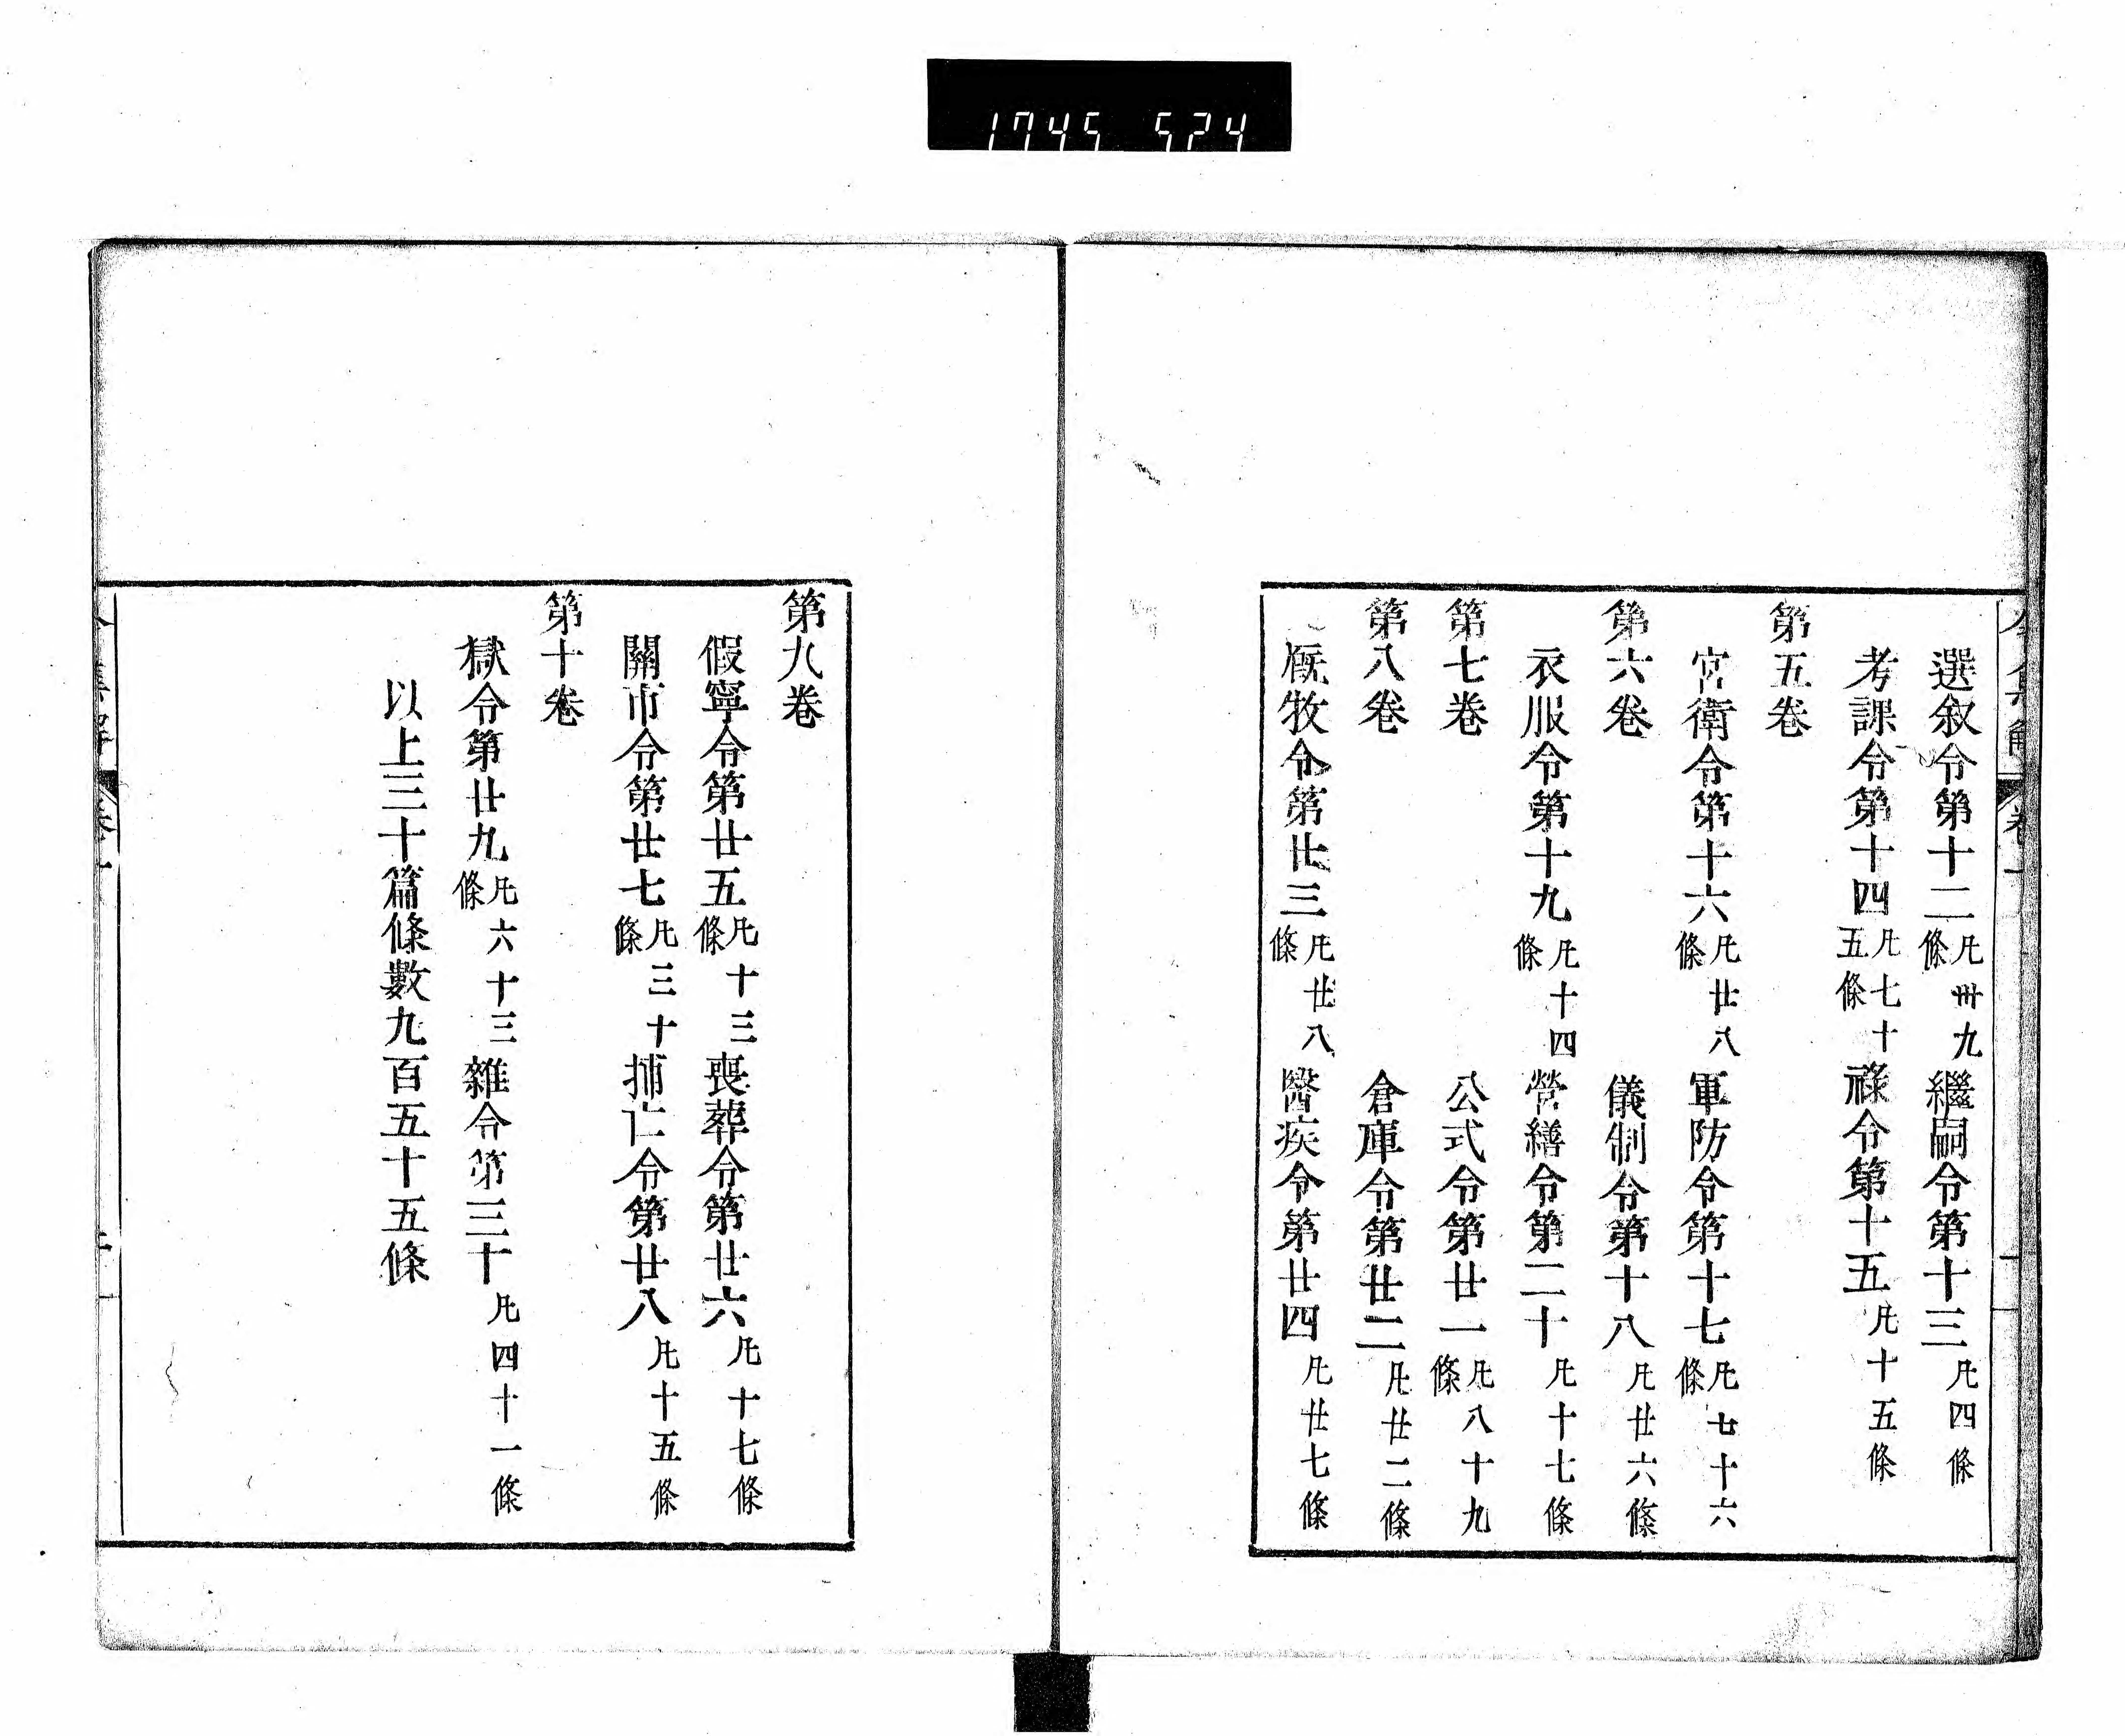 1745 524
選叙令第十二凡卅九條 繼嗣令第十三凡四條
考課令第十四凡七十五條 祿令第十五凡十五條
第五卷
宮衛令第十六凡廿八條 軍防令第十七凡七十六條
第六卷 儀制令第十八凡廿六條
衣服令第十九凡十四條 營繕令第二十凡十七條
第七卷 公式令第廿一凡八十九條
第八卷 倉庫令第廿二凡廿二條
厩牧令第廿三凡廿八條 醫疾令第廿四凡廿七條
第九卷
假寧令第廿五凡十三條 喪葬令第廿六凡十七條
關市令第廿七凡三十條 捕亡令第廿八凡十五條
第十卷
獄令第廿九凡六十三條 雜令第三十凡四十一條
以上三十篇條數九百五十五條